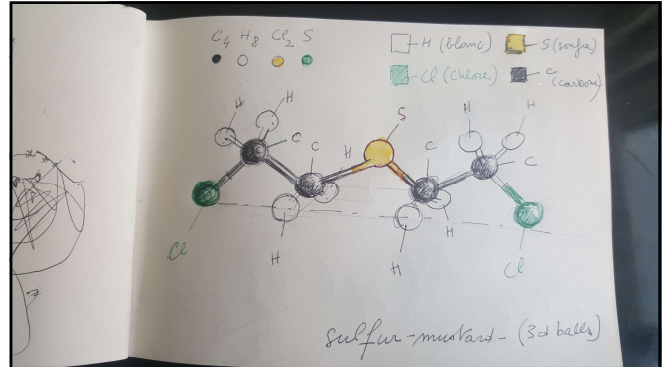 C4 H8 Cl2 S
H (blanc)
S (soufre)
Cl (chlore)
C (carbone)
H
H
C
C
H
S
C
H
H
C
Cl
H
H
H
Cl
sulfur-mustard - (3d balls)